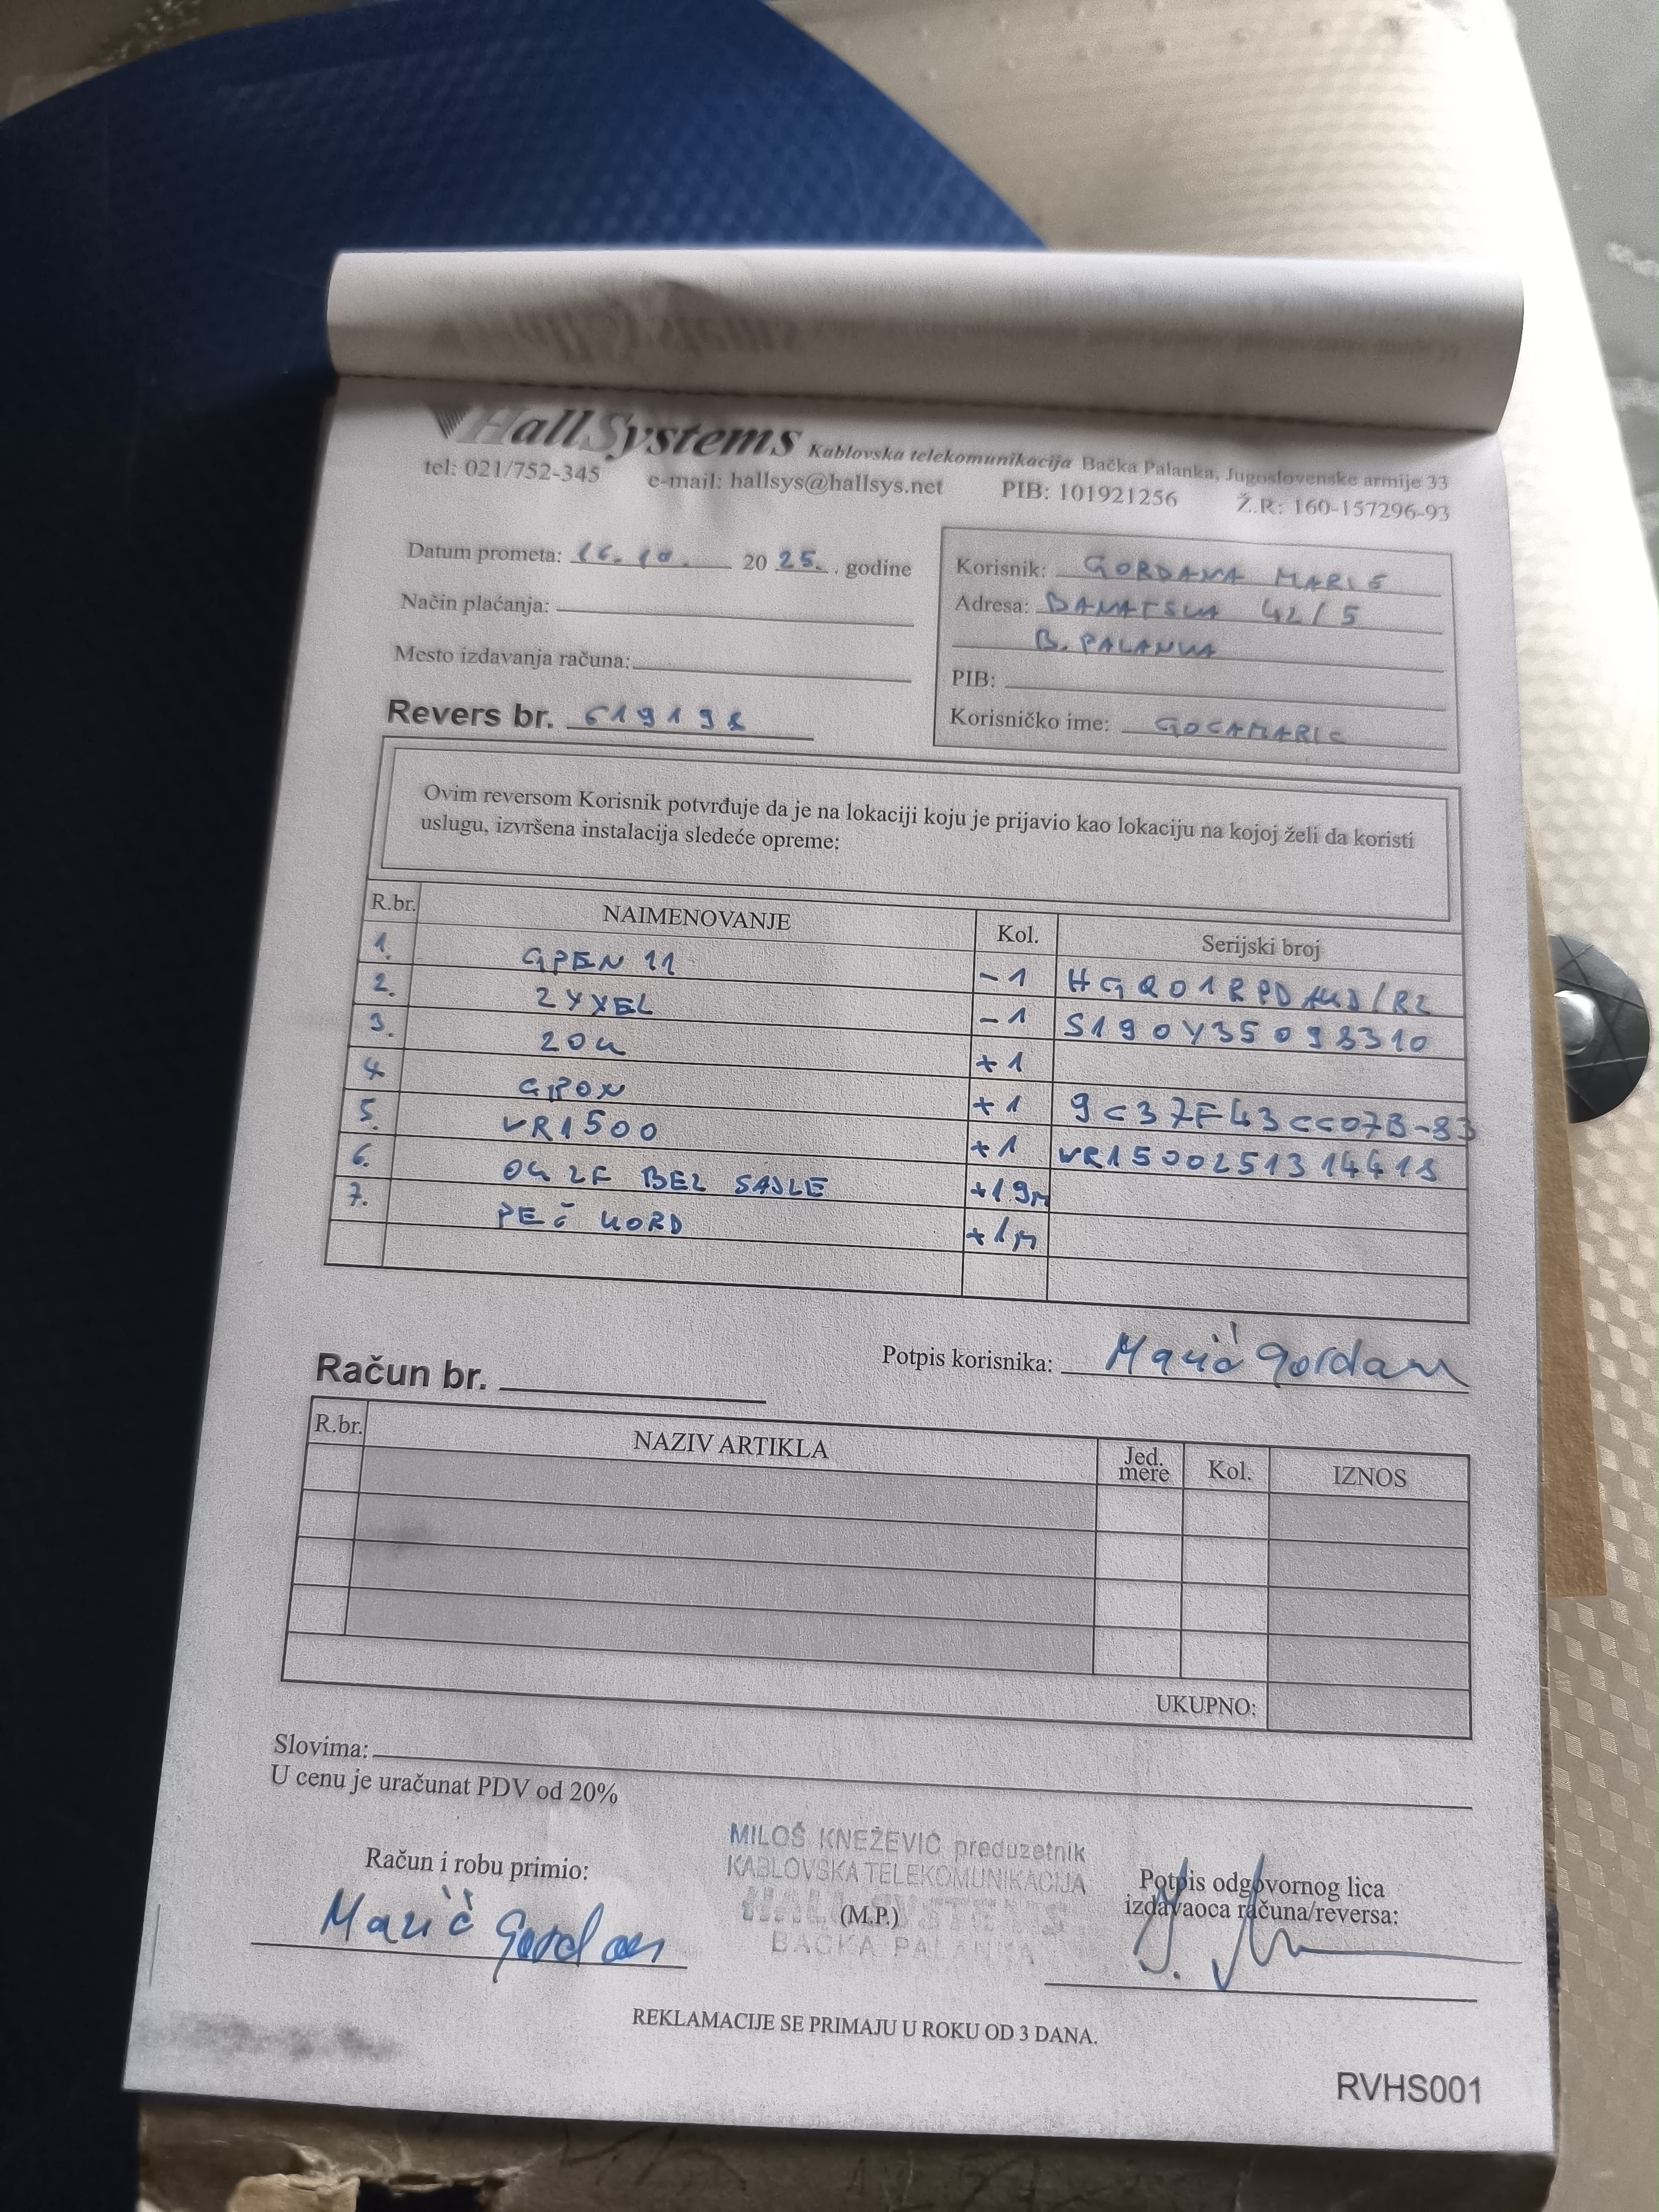 HallSystems Kablovska telekomunikacija Bačka Palanka, Jugoslovenske armije 33
tel: 021/752-345 e-mail: hallsys@hallsys.net PIB: 101921256 Ž.R: 160-157296-93
Datum prometa: 16.10. 20 25. . godine
Način plaćanja:
Mesto izdavanja računa:
Revers br. 619198
Korisnik: GORDANA MARIĆ
Adresa: BANATSKA 42/5
B. PALANKA
PIB:
Korisničko ime: GOCAMARIC
Ovim reversom Korisnik potvrđuje da je na lokaciji koju je prijavio kao lokaciju na kojoj želi da koristi
uslugu, izvršena instalacija sledeće opreme:
R.br. NAIMENOVANJE Kol. Serijski broj
1. GPEN 11 -1 HGQ01RPD /R2
2. ZYXEL -1 S190Y35098310
3. ZOK +1
4. GPON +1 9C37F43CC07B-83
5. VR1500 +1 VR1500251314418
6. OK 2F BEZ SAJLE +19m
7. PEČ KORD +1m
Potpis korisnika: Marić Gordana
Račun br.
R.br. NAZIV ARTIKLA Jed. mere Kol. IZNOS
UKUPNO:
Slovima:
U cenu je uračunat PDV od 20%
Račun i robu primio:
Marić Gordana
MILOŠ KNEŽEVIĆ preduzetnik
KABLOVSKA TELEKOMUNIKACIJA
HALL SYSTEMS
(M.P.)
BAČKA PALANKA
Potpis odgovornog lica
izdavaoca računa/reversa:
REKLAMACIJE SE PRIMAJU U ROKU OD 3 DANA.
RVHS001